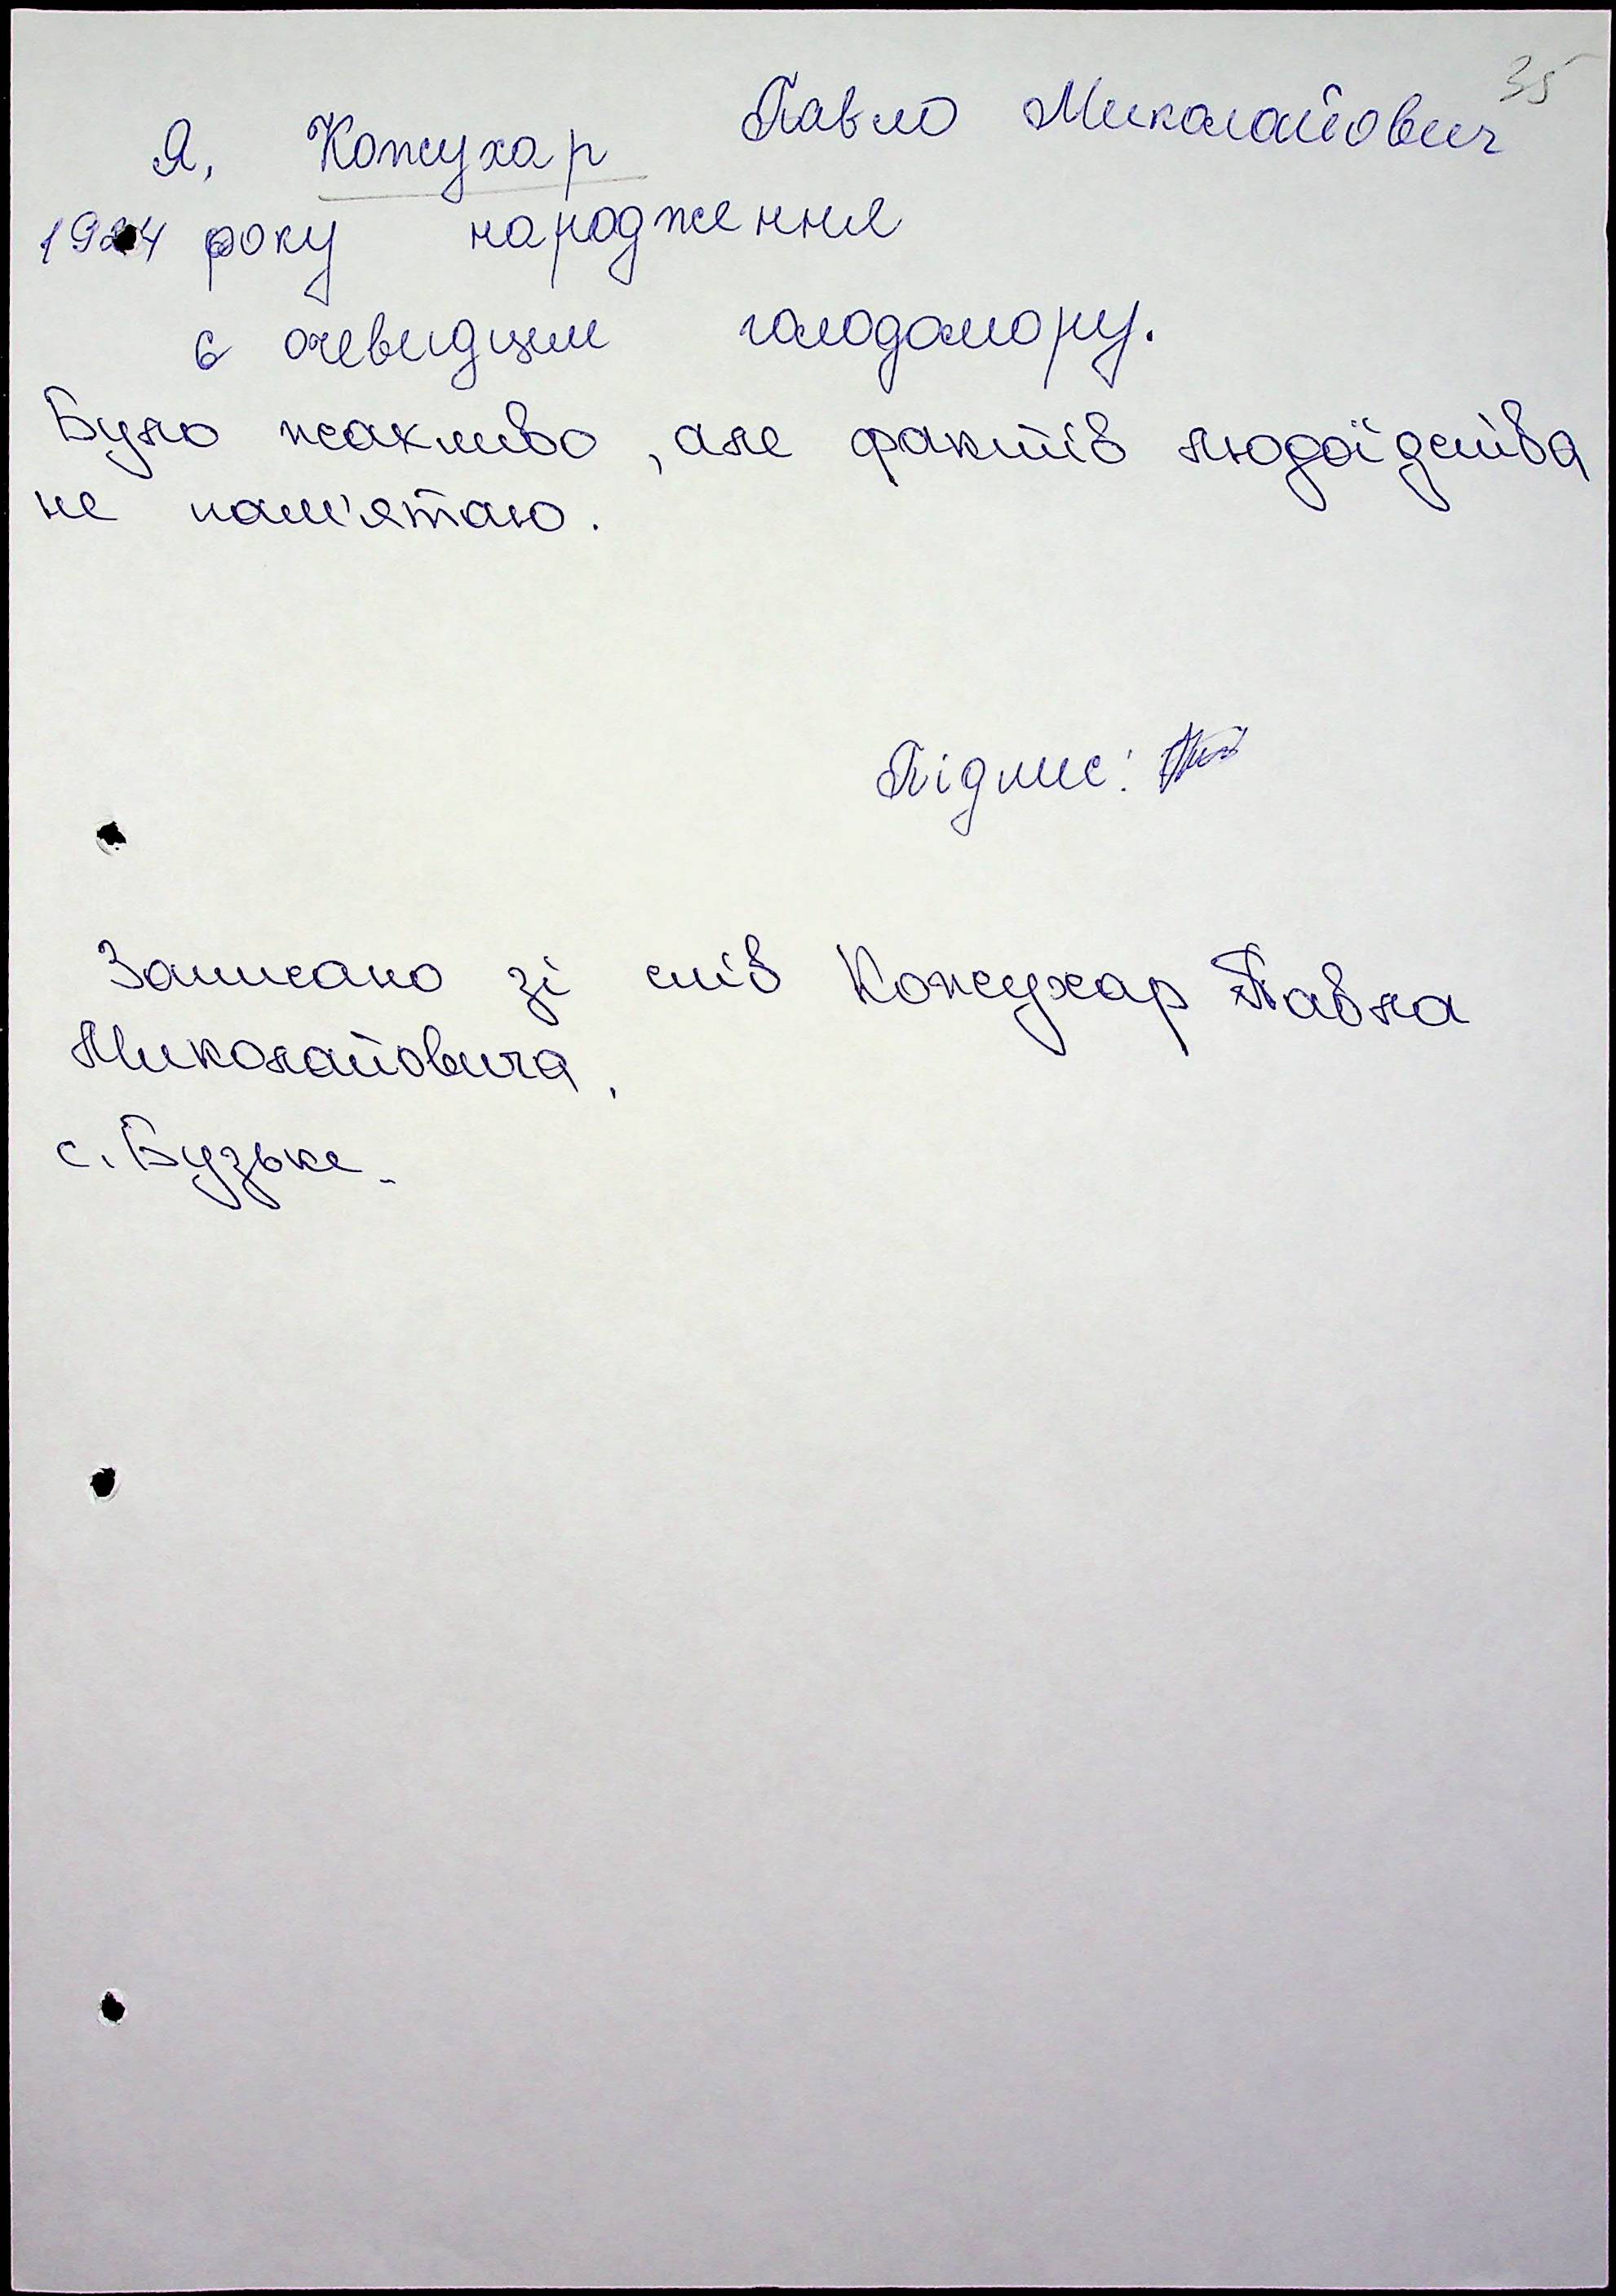 35
Я, Кожухар Павло Миколайович
1924 року народження
є очевидцем голодомору.
Було жахливо, але фактів людоїдства
не пам'ятаю.
Підпис:
Записано зі слів Кожухар Павла
Миколайовича,
с. Бузьке.